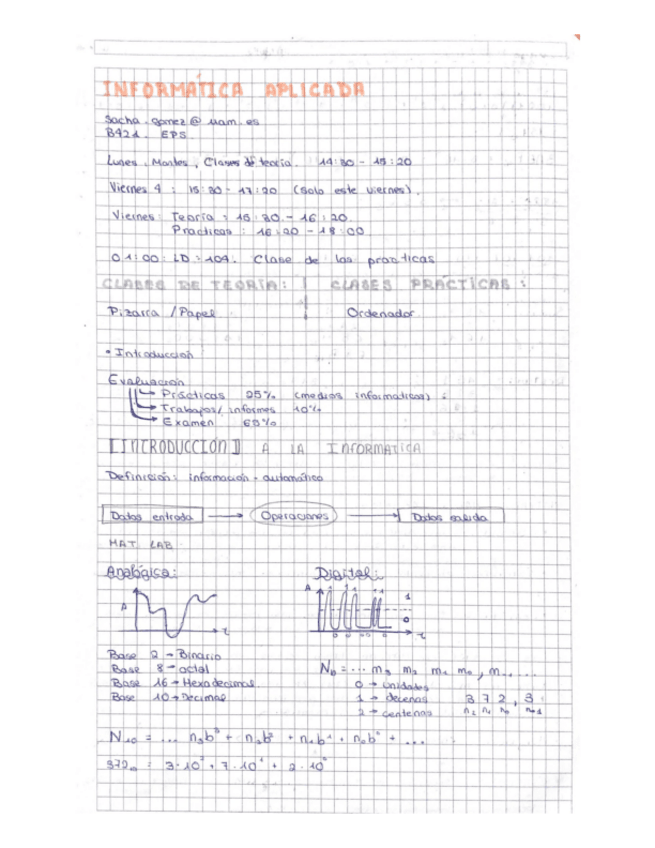 INFORMÁTICA APLICADA
Sacha.gomez@uam.es
B421. EPS
Lunes, Martes, Clases de teoría. 14:30 - 15:20
Viernes 4 : 15:30 - 17:20 (solo este viernes).
Viernes: Teoría : 15:30 - 16:20.
Practicas : 16:20 - 18:00
01:00: LD - 109. Clase de las practicas
CLASES DE TEORÍA: CLASES PRÁCTICAS :
Pizarra / Papel Ordenador
• Introducción
Evaluación
→ Prácticas 25% (medios informaticos) :
→ Trabajos/ informes 10%
→ Examen 65%
[INTRODUCCIÓN] A LA INFORMATICA
Definición: información - automático
Datos entrada → Operaciones → Datos salida
MAT. LAB
Analógica: Digital:
A t A 1 0 t
Base 2 → Binario
Base 8 → octal N_b = ... m_3 m_2 m_1 m_0 , m_-1 ...
Base 16 → Hexadecimal 0 → unidades
Base 10 → Decimal 1 → decenas 3 7 2 , 3
2 → centenas n_2 n_1 n_0 n_-1
N_10 = ... n_3b³ + n_2b² + n_1b¹ + n_0b⁰ + ...
372_10 = 3·10² + 7·10¹ + 2·10⁰